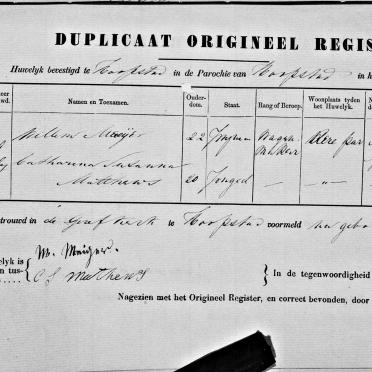 DUPLICAAT ORIGINEEL REGIS
Huwelyk bevestigd te Hoopstad in de Parochie van Hoopstad in h
Namen en Toenamen. Ouder-dom. Staat. Rang of Beroep. Woonplaats tyden het Huwelyk.
Willem Meijer 22 Jongman Wagenmaker
Catharina Susanna
Matthews 20 Jonged — „ — — „ —
etrouwd in de Geref Kerk te Hoopstad voormeld na gebo
W. Meijer.
elyk is
n tus-
C S Matthews
In de tegenwoordigheid
Nagezien met het Origineel Register, en correct bevonden, door